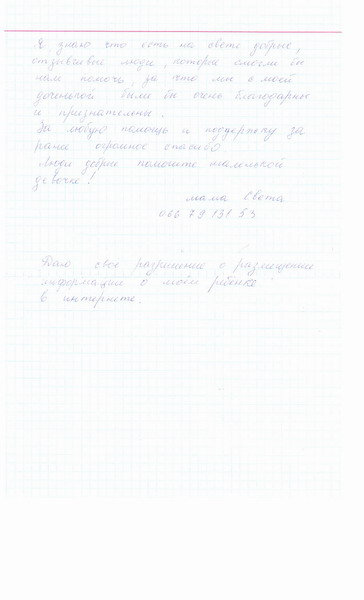 Я знаю что есть на свете добрые,
отзывчивые люди, которые смогли бы
нам помочь, за что мы с моей
доченькой были бы очень благодарные
и признательные.
За любую помощь и поддержку за
рание огромное спасибо.
Люди добрые помогите маленькой
девочке!
мама Света
066 79 131 53
Даю свое разришение о размещение
информации о моём ребенке
в интернете.